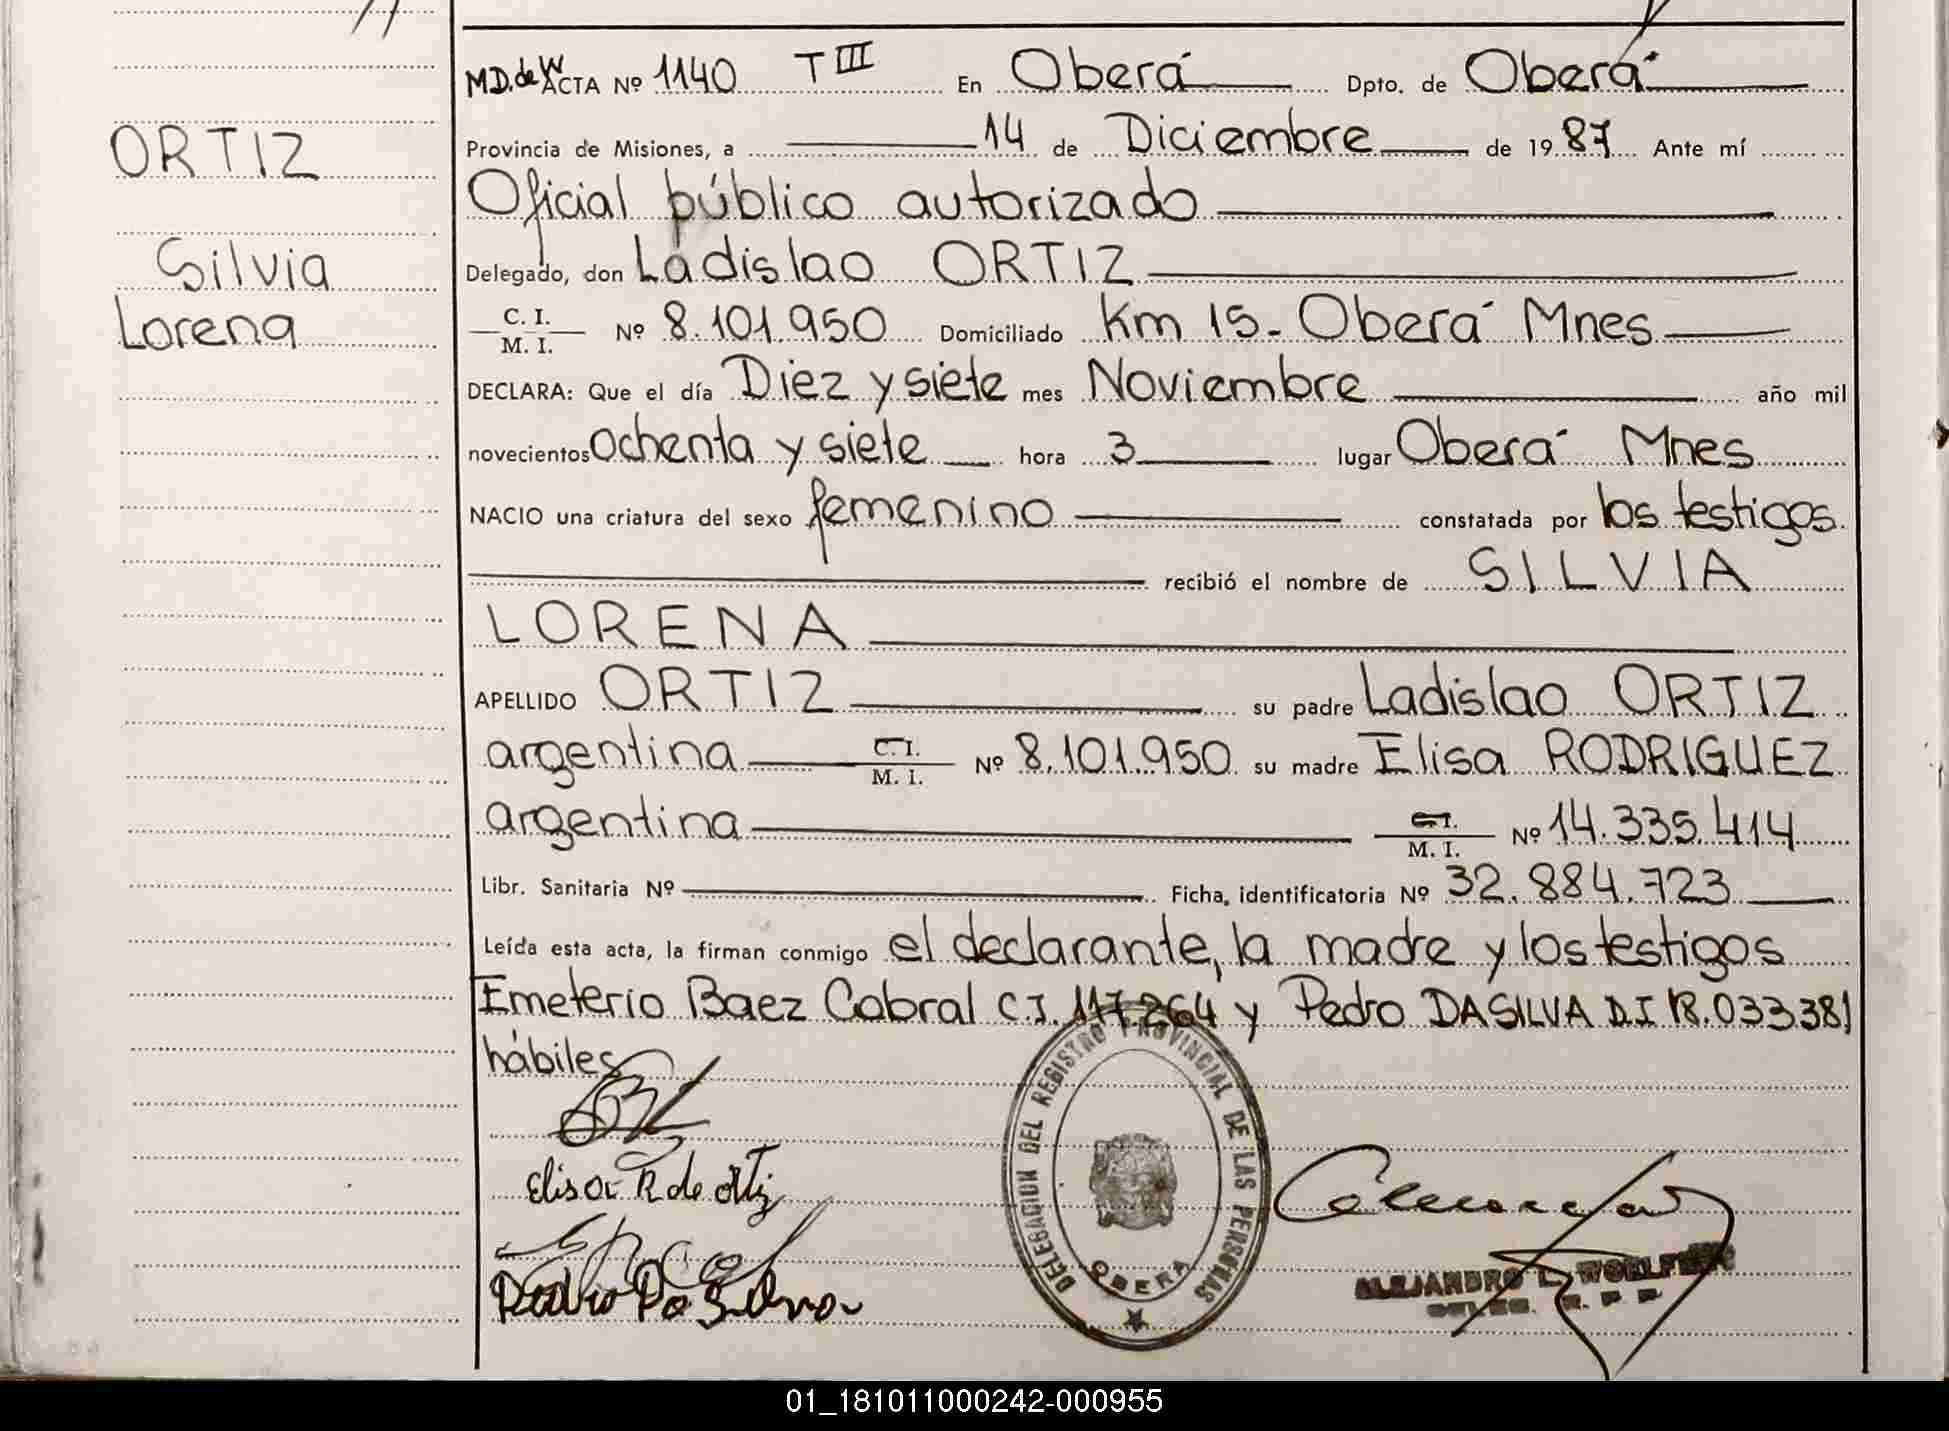 ORTIZ
Silvia
Lorena
MD.de W ACTA Nº 1140 T III En Oberá Dpto. de Oberá
Provincia de Misiones, a 14 de Diciembre de 1987 Ante mí
Oficial público autorizado
Delegado, don Ladislao ORTIZ
C. I. M. I. Nº 8.101.950 Domiciliado Km 15- Oberá Mnes
DECLARA: Que el día Diez y siete mes Noviembre año mil
novecientos ochenta y siete hora 3 lugar Oberá Mnes
NACIO una criatura del sexo femenino constatada por los testigos.
recibió el nombre de SILVIA
LORENA
APELLIDO ORTIZ su padre Ladislao ORTIZ
argentina C. I. M. I. Nº 8.101.950 su madre Elisa RODRIGUEZ
argentina C. I. M. I. Nº 14.335.414
Libr. Sanitaria Nº Ficha, identificatoria Nº 32.884.723
Leída esta acta, la firman conmigo el declarante, la madre y los testigos
Emeterio Baez Cabral C.I. 117.264 y Pedro DASILVA D.I 18.033.381
hábiles
Elisa R de Ortiz
Pedro Da Silva
DELEGACION DEL REGISTRO PROVINCIAL DE LAS PERSONAS
OBERA
ALEJANDRO L.
01_181011000242-000955